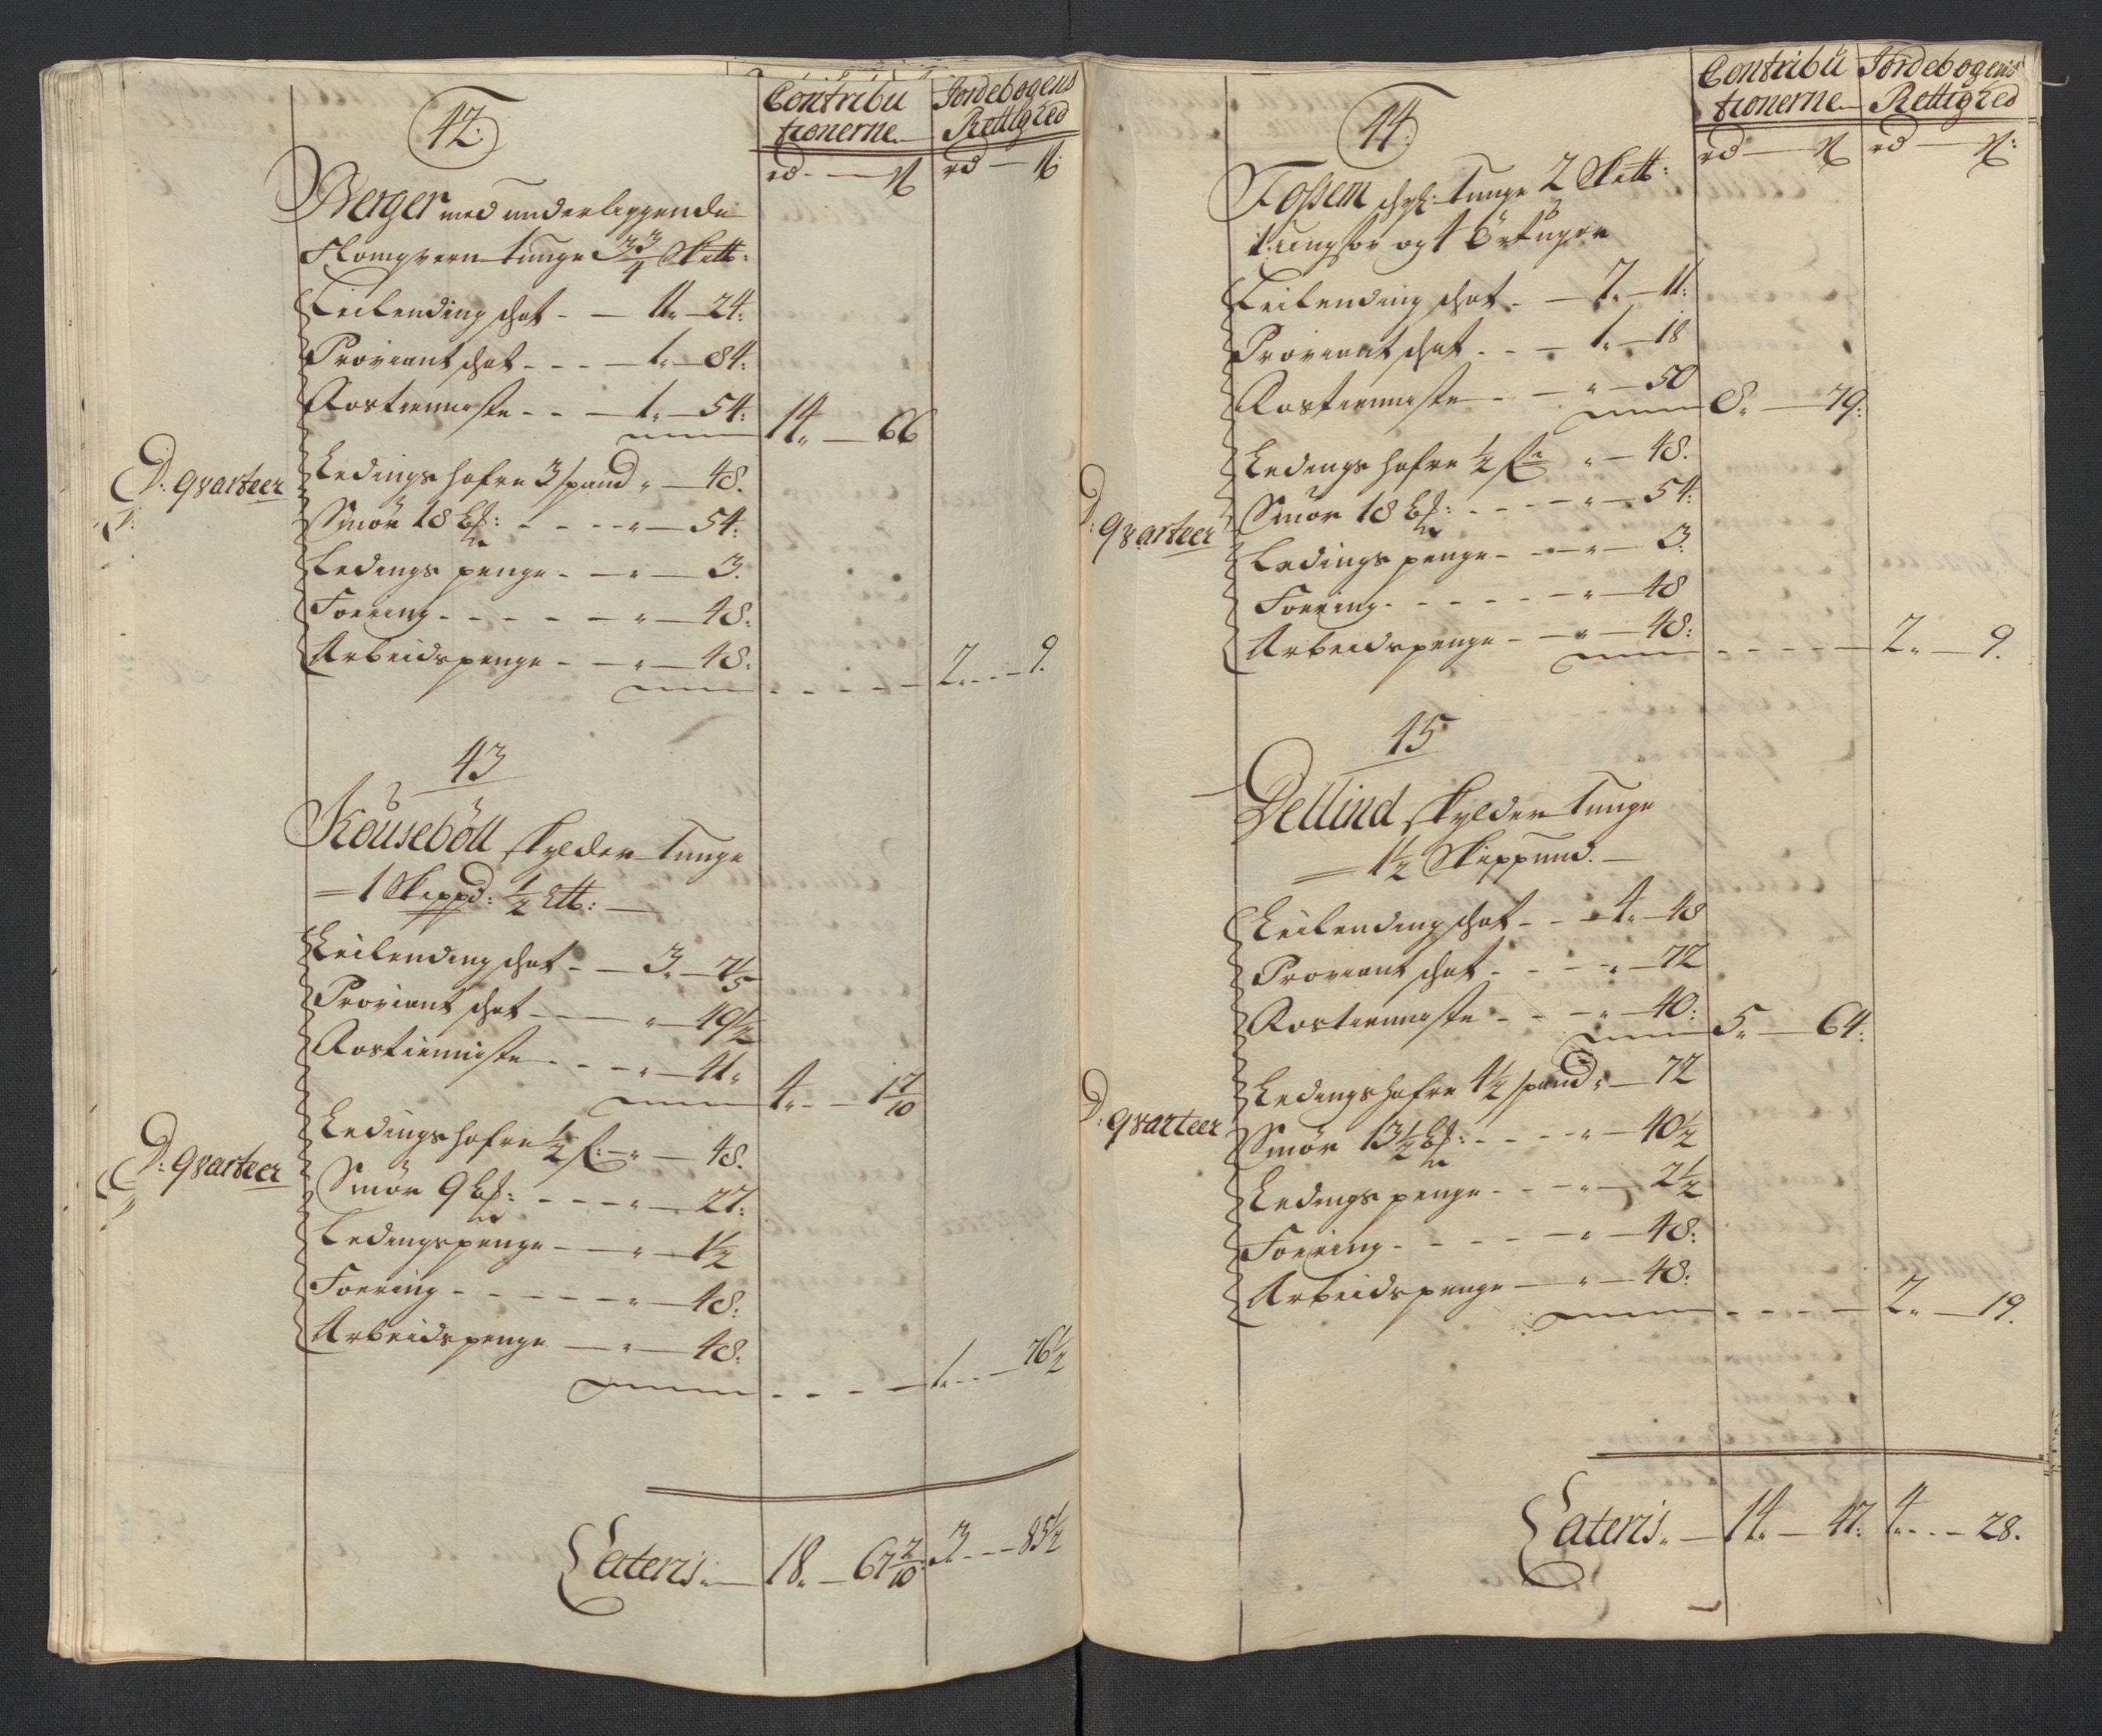 Contribu
tionerne
Jordebogens
Rettighed
rd — ß
rd — ß
42.
Berger med underliggende
Flomqvern tunge 3 3/4 Sk℔:
Leilending schat - - 11 - 24:
Proviant schat - - - 1 - 84:
Rostienniste - - 1 - 54:
14 - 66
D: qvarteer
Ledings hafre 3 spand " - 48.
Smör 18 b℔: - - - " - 54:
Ledings penge - " - 3.
Foering - - - - " - 48:
Arbeidspenge - - " - 48:
2 - - 9.
43
Kousebött skylder tunge
= 1 Skippd: 1/2 L℔: —
Leilending schat - - 3 - 7 1/5
Proviant schat — " - 49 1/2
Rostienniste - - - " - 41
4 - - 1 7/10
D: qvarteer
Ledings hafre 1/2 t: - " - 48.
Smör 9 b℔: - - - " - 27:
Ledingspenge — " - 1 1/2
Foering - - - - " - 48:
Arbeidspenge — " - 48:
1 - - 76 1/2
Lateris — 18 - 67 7/10 3 - - 85 1/2
Contribu
tionerne
Jordebogens
Rettighed
rd — ß
rd — ß:
44.
Fossem schyl: tunge 2 Sk℔:
og 4 örtuger
Leilending schat - - 7 - 11:
Proviant schat - - - 1 - 18
Rostienniste - - " - 50
8 - 79:
D: qvarteer
Ledings hafre 1/2 t " - 48.
Smör 18 b℔: - - - " - 54:
Ledings penge - " - 3:
Foering - - - - " - 48
Arbeidspenge - - " - 48:
2 - 9.
45
Dellind skylder tunge
= 1 1/2 Skippund. —
Leilending schat - - - 4 - 48
Proviant schat - - - " - 72
Rostienniste - - - " - 40:
5 - 64:
D: qvarteer
Ledings hafre 4 1/2 spand " - 72
Smör 13 1/2 b℔: - - - " - 40 1/2
Ledings penge - - - " - 2 1/2
Foering - - - - " - 48:
Arbeidspenge — " - 48:
2 - 19.
Lateris - 14 - 47: 4 - - 28.